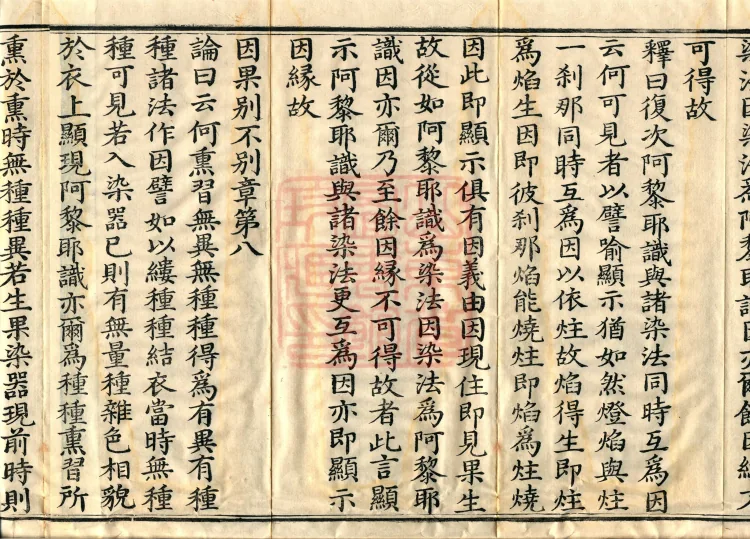 染法因染法爲阿黎耶識因亦爾餘因緣不
可得故
釋曰復次阿黎耶識與諸染法同時互爲因
云何可見者以譬喻顯示猶如然燈焰與炷
一刹那同時互爲因以依炷故焰得生即炷
爲焰生因即彼刹那焰能燒炷即焰爲炷燒
因此即顯示俱有因義由因現住即見果生
故從如阿黎耶識爲染法因染法爲阿黎耶
識因亦爾乃至餘因緣不可得故者此言顯
示阿黎耶識與諸染法更互爲因亦即顯示
因緣故
因果別不別章第八
論曰云何熏習無異無種種得爲有異有種
種諸法作因譬如以縷種種結衣當時無種
種可見若入染器已則有無量種雜色相貌
於衣上顯現阿黎耶識亦爾爲種種熏習所
熏於熏時無種種異若生果染器現前時則